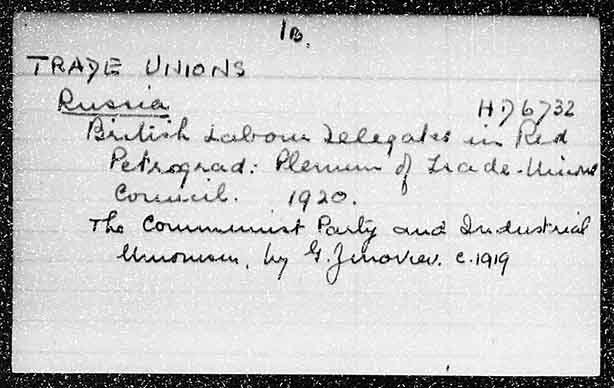 1B.
TRADE UNIONS
Russia HD6732
British Labour Delegates in Red
Petrograd: Plenum of Trade-Unions
Council. 1920.
The Communist Party and Industrial
Unionism, by G. Zinoviev. c.1919